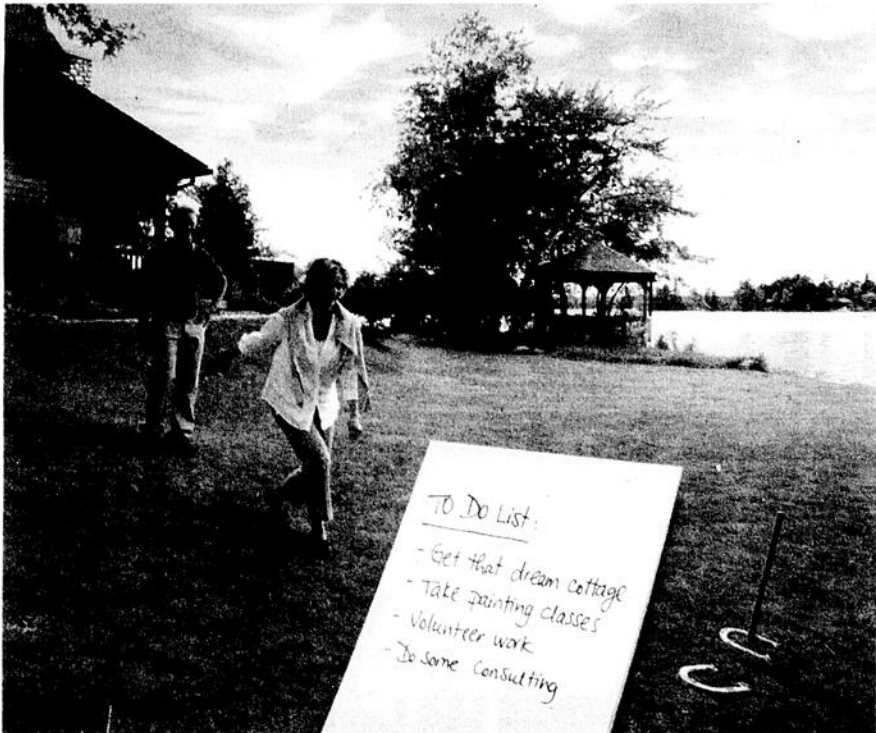 To Do List:
- Get that dream cottage
- Take painting classes
- Volunteer work
- Do some consulting